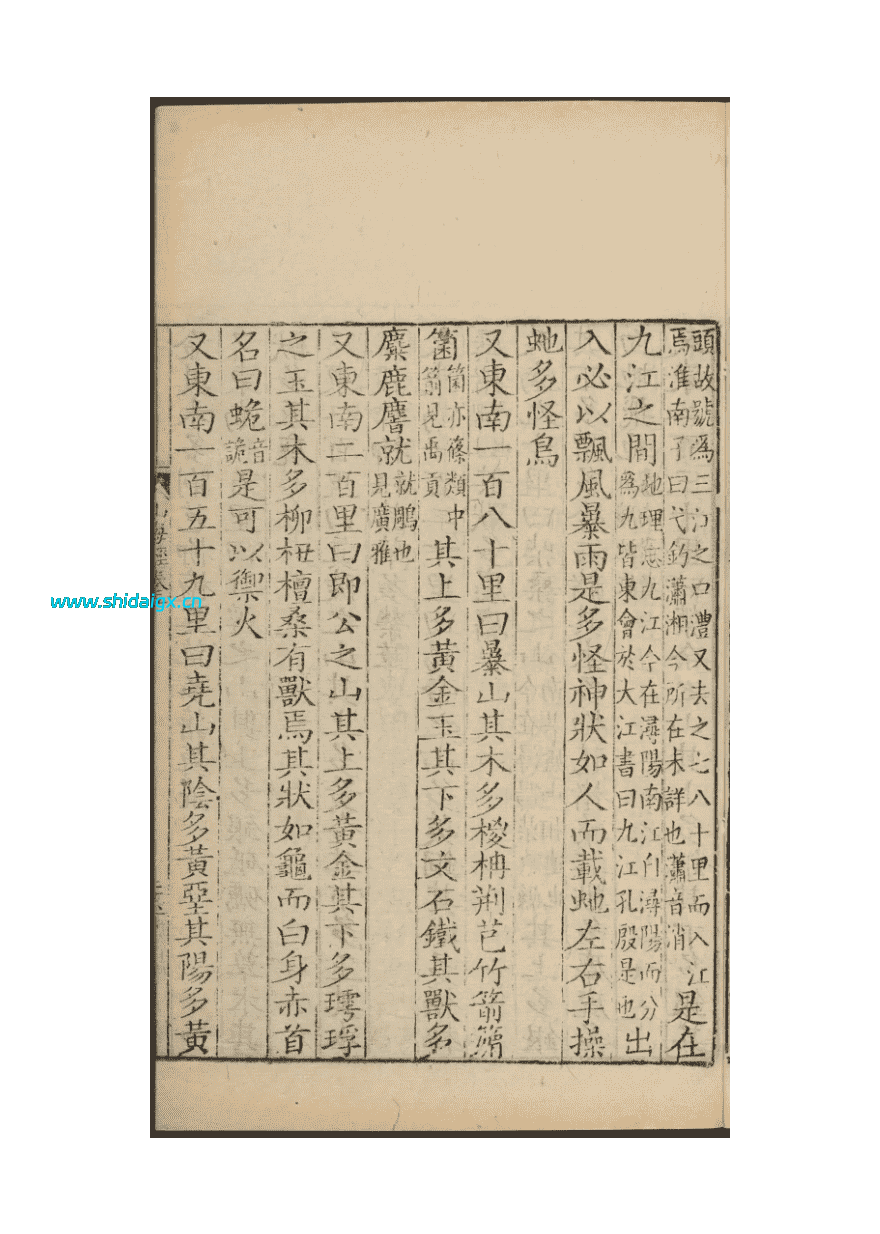 頭故號爲三江之口澧又去之七八十里而入江
焉淮南子曰弋釣瀟湘今所在未詳也瀟音消
是在
九江之間
地理志九江今在潯陽南江自潯陽而分
爲九皆東會於大江書曰九江孔殷是也
出
入必以飄風暴雨是多怪神狀如人而載虵左右手操
虵多怪鳥
又東南一百八十里曰暴山其木多椶枏荆芑竹箭䉋
箘
箘亦篠類中
箭見禹貢
其上多黃金玉其下多文石鐵其獸多
麋鹿麐就
就鵰也
見廣雅
又東南二百里曰即公之山其上多黃金其下多㻬琈
之玉其木多柳杻檀桑有獸焉其狀如龜而白身赤首
名曰蛫
音
詭
是可以禦火
又東南一百五十九里曰堯山其陰多黃堊其陽多黃
www.shidaigx.cn